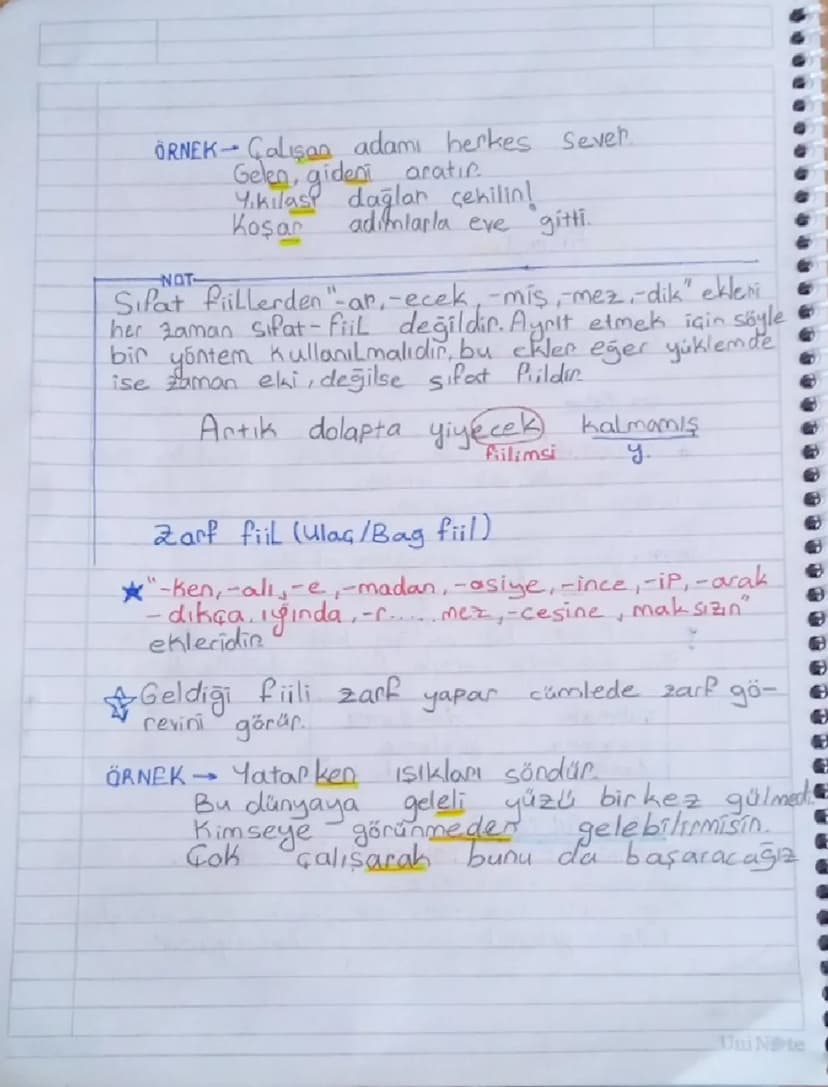 ÖRNEK → Çalışan adamı herkes sever.
Gelen, gideni aratır.
Yıkılası dağlar çekilin!
Koşar adımlarla eve gitti.
NOT
Sıfat fiillerden "-ar, -ecek, -miş, -mez, -dik" ekleri
her zaman sıfat-fiil değildir. Ayrıt etmek için şöyle
bir yöntem kullanılmalıdır, bu ekler eğer yüklemde
ise zaman eki, değilse sıfat fiildir.
Artık dolapta yiyecek kalmamış
fiilimsi y.
Zarf fiil (Ulaç/Bag fiil)
★ "-ken, -alı, -e, -madan, -asiye, -ince, -ip, -arak
-dıkça, ığında, -r.... mez, -cesine, maksızın"
ekleridir.
☆ Geldiği fiili zarf yapar cümlede zarf gö-
revini görür.
ÖRNEK → Yatarken ışıkları söndür.
Bu dünyaya geleli yüzü bir kez gülmedi.
Kimseye görünmeden gelebilirmisin.
Çok çalışarak bunu da başaracağız
UniNote